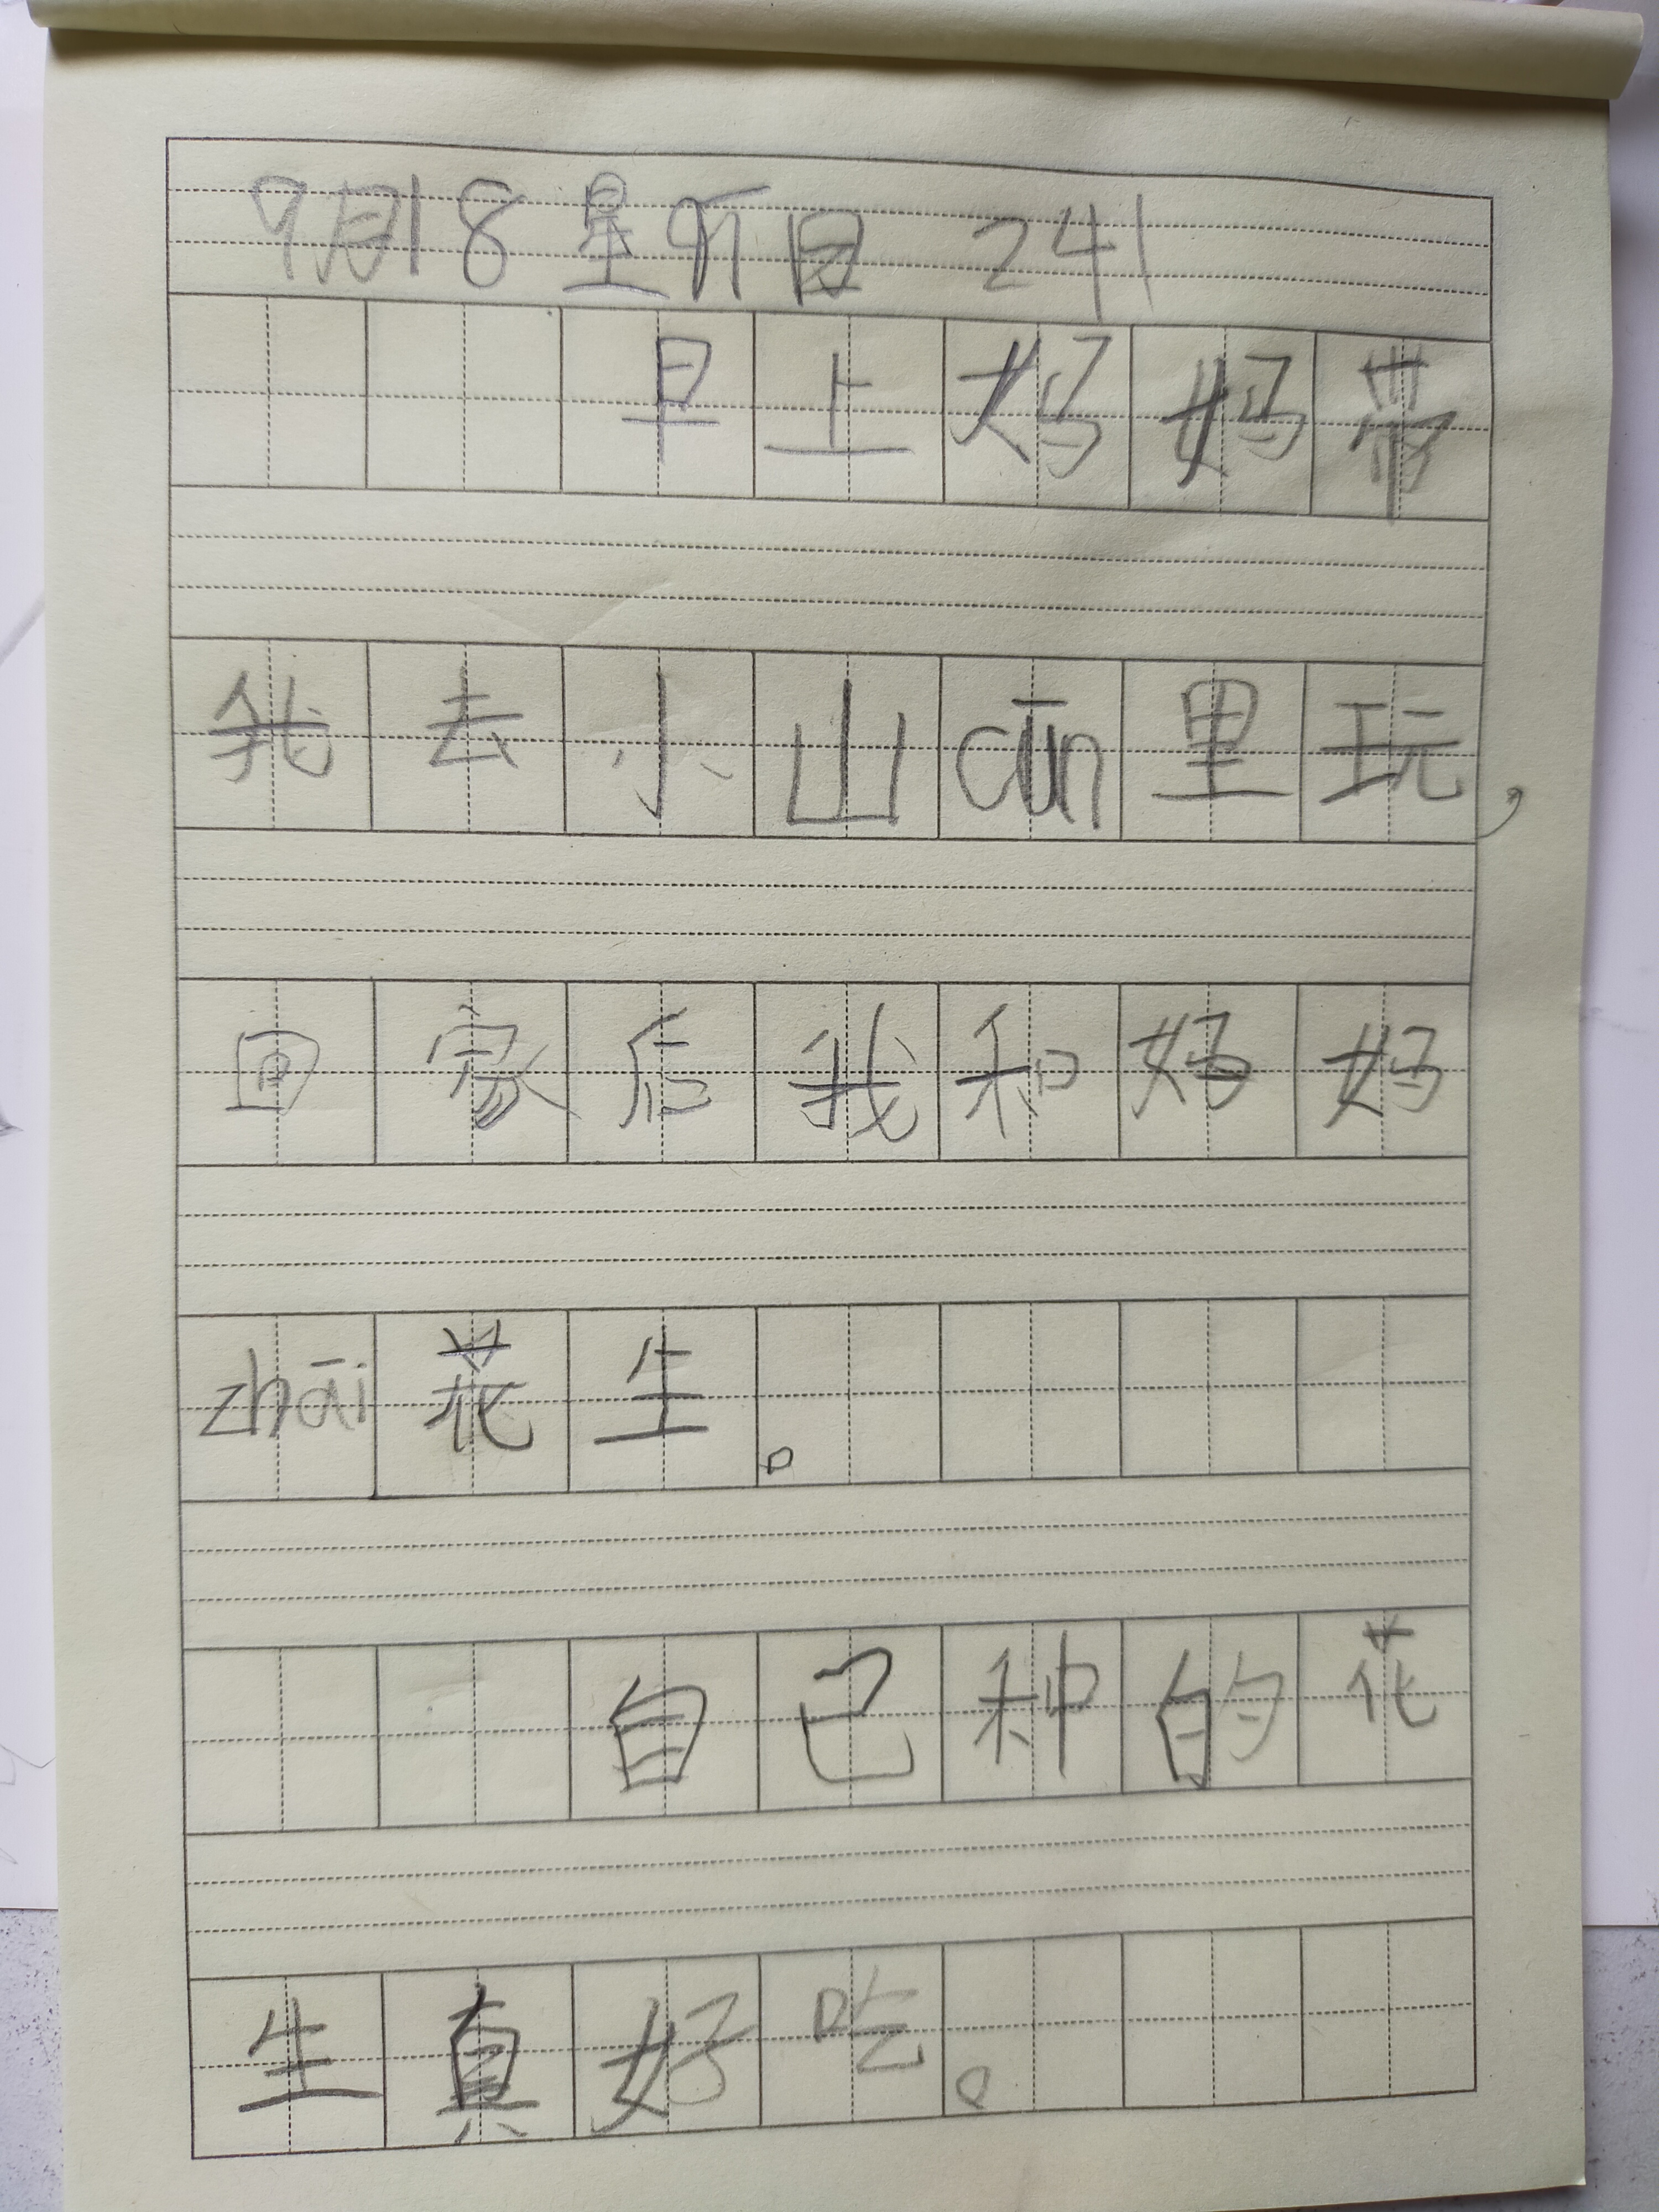 9月18星期日 241
早上妈妈带
我去小山cūn里玩,
回家后我和妈妈
zhāi花生。
自己种的花
生真好吃。